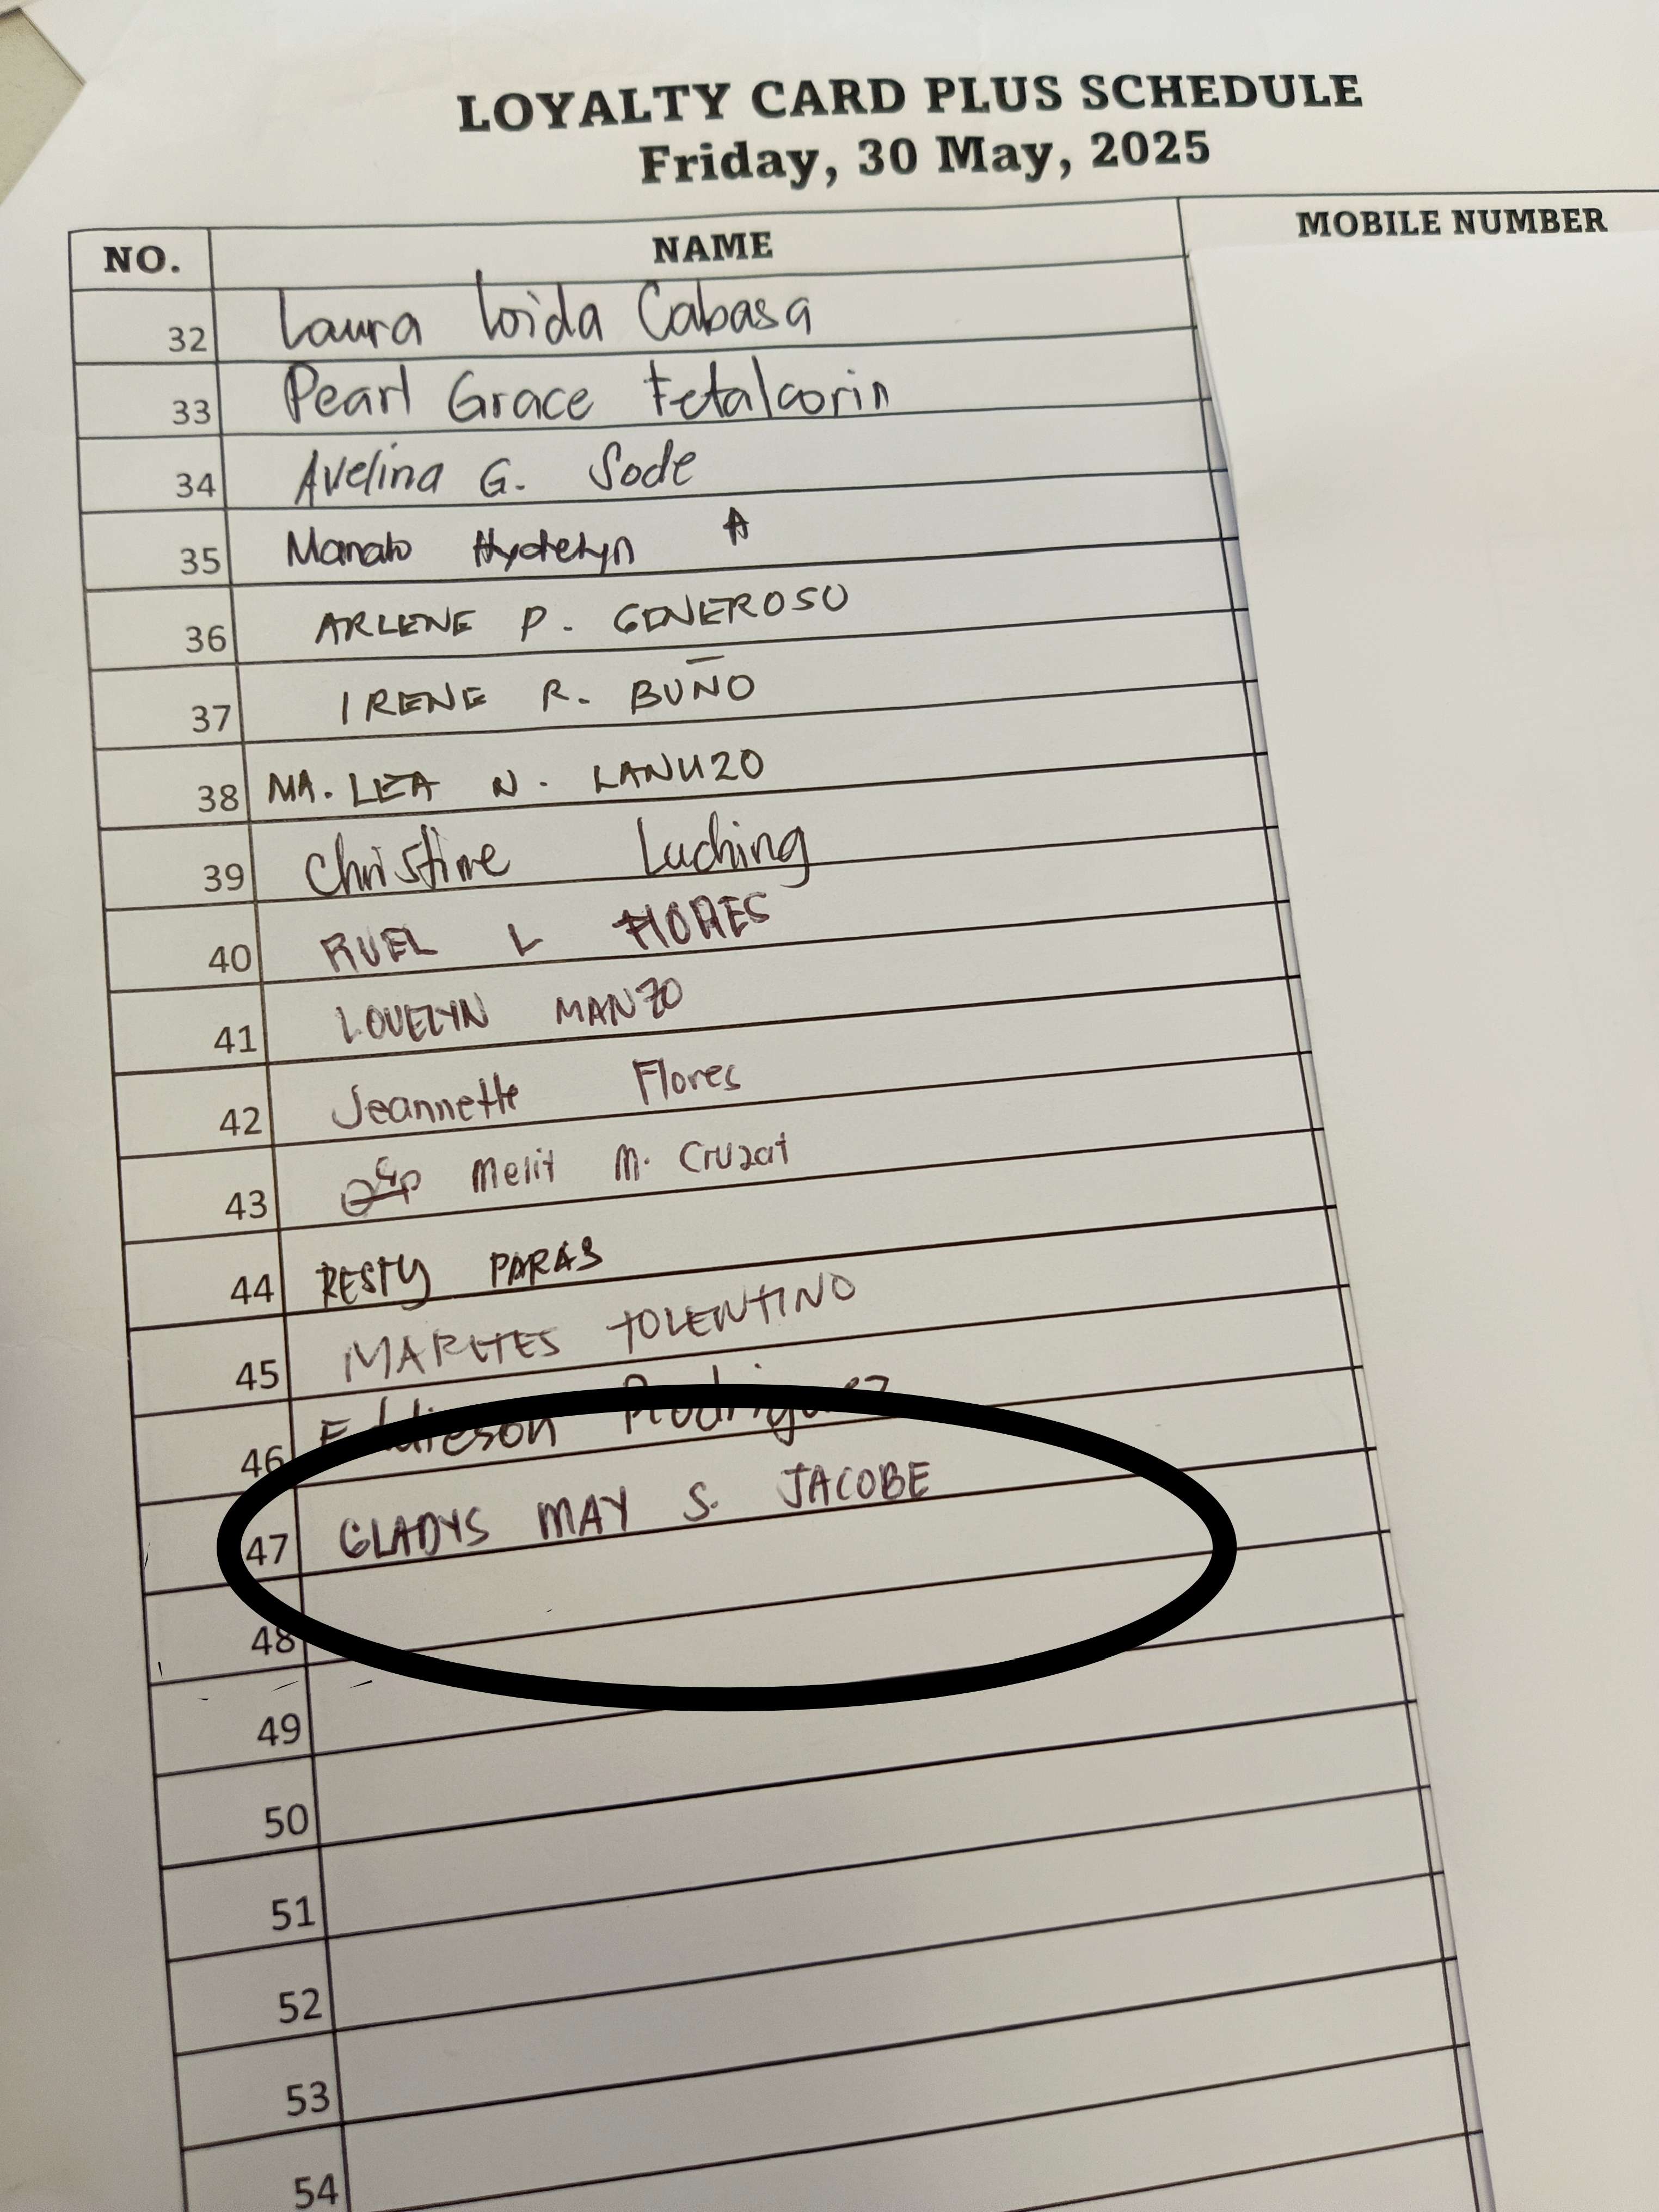 LOYALTY CARD PLUS SCHEDULE
Friday, 30 May, 2025
NO. NAME MOBILE NUMBER
32 Laura Loida Cabasa
33 Pearl Grace Fetalcorin
34 Avelina G. Sode
35 Manalo A
36 ARLENE P. GENEROSO
37 IRENE R. BUÑO
38 MA. LEA N. LANUZO
39 Christine Luching
40 RUEL L FLORES
41 LOVELYN MANZO
42 Jeannette Flores
43 Melit M. Cruzat
44 RESTY PARAS
45 MARITES TOLENTINO
46 Eddieson Rodriguez
47 GLADYS MAY S. JACOBE
48
49
50
51
52
53
54